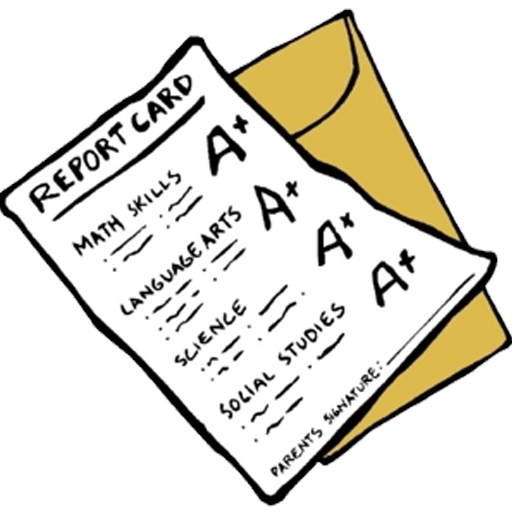 REPORT CARD
MATH SKILLS A+
LANGUAGE ARTS A+
SCIENCE A+
SOCIAL STUDIES A+
PARENTS SIGNATURE: